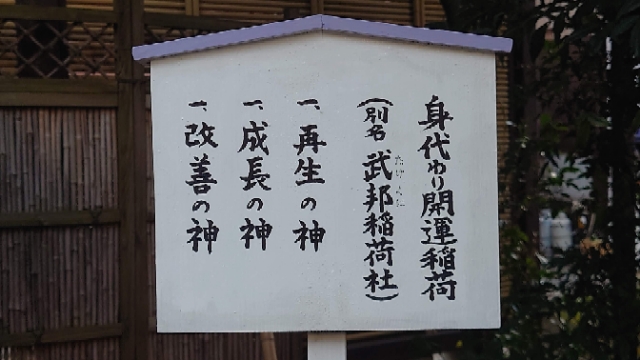 身代わり開運稲荷
(別名 武邦稲荷社)
一、再生の神
一、成長の神
一、改善の神